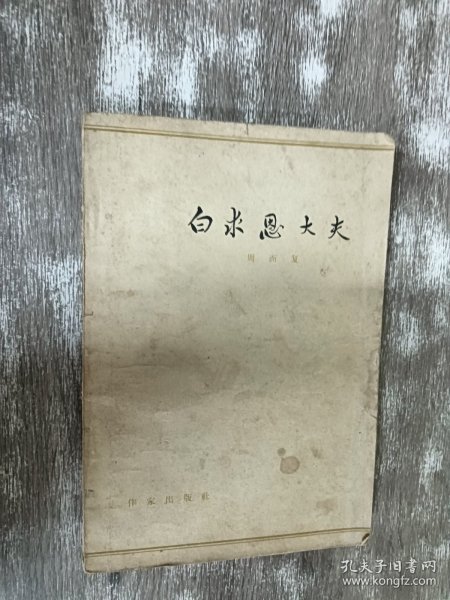 白求恩大夫
周而复
作家出版社
孔夫子旧书网
www.kongfz.com